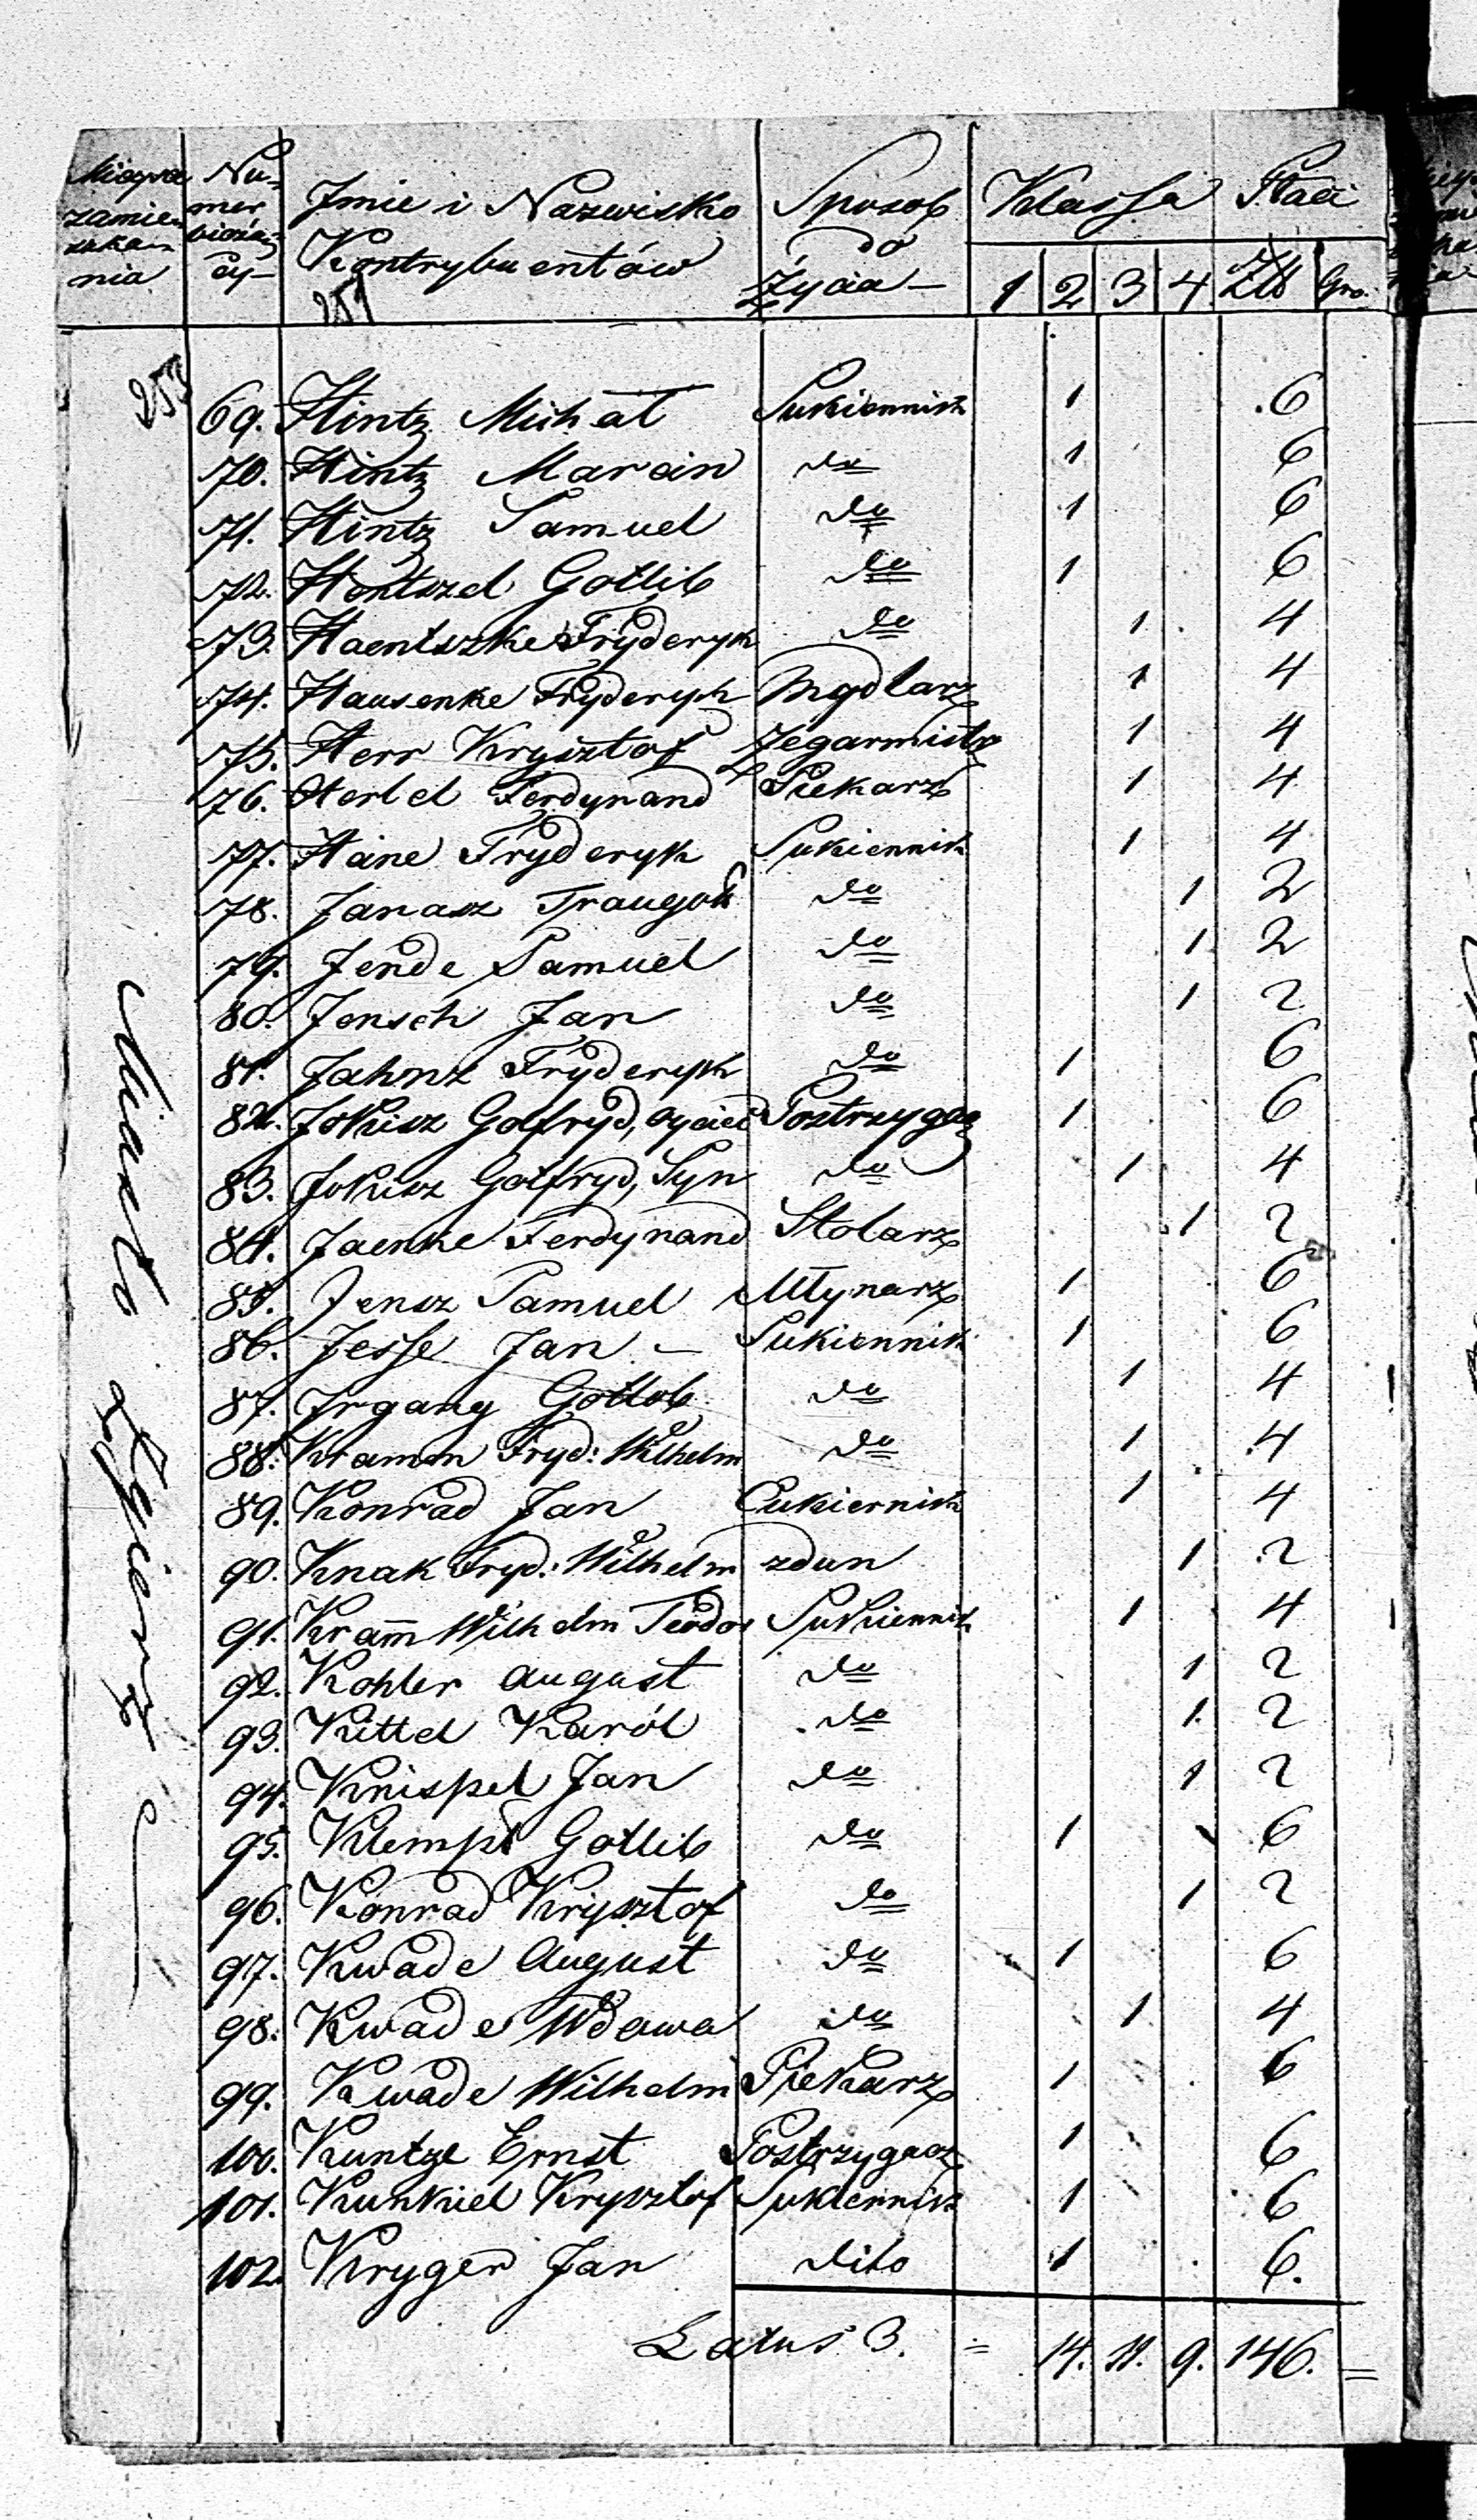 Mieysce zamieszkania Numer bieżący Jmie i Nazwisko Kontrybuentów Sposob do Życia — Klassa 1 2 3 4 Płaci Złt Gro.
251
253
69. Hintz Michał Sukiennik 1 6
70. Hintz Marcin do 1 6
71. Hintz Samuel do 1 6
72. Hentszel Gottlib do 1 6
73. Haentszke Fryderyk do 1 4
74. Hausenke Fryderyk Mydlarz 1 4
75. Herr Krysztof Zegarmistrz 1 4
76. Hertel Ferdynand Piekarz 1 4
77. Haine Fryderyk Sukiennik 1 4
78. Janasz Traugott do 1 2
79. Jende Samuel do 1 2
80. Jensch Jan do 1 2
81. Jahnz Fryderyk do 1 6
82. Jokisz Gotfryd, oyciec Postrzygacz 1 6
83. Jokisz Gotfryd, Syn do 1 4
84. Jaenke Ferdynand Stolarz 1 2
85. Jensz Samuel Młynarz 1 6
86. Jesse Jan — Sukiennik 1 6
87. Jrgang Gottlob do 1 4
88. Kramm Fryd: Wilhelm do 1 4
89. Konrad Jan Cukiernik 1 4
90. Knak Fryd: Wilhelm zdun 1 2
91. Kram̅ Wilhelm Teodor Sukiennik 1 4
92. Kohler August do 1 2
93. Kittel Karól do 1 2
94. Knispel Jan do 1 2
95. Klempt Gottlib do 1 6
96. Konrad Krysztof do 1 2
97. Kwade August do 1 6
98. Kwade Wdowa do 1 4
99. Kwade Wilhelm Piekarz 1 6
100. Kuntze Ernst Postrzygacz 1 6
101. Kunkiel Krysztof Sukiennik 1 6
102. Kryger Jan dito 1 6.
Latus 3. = 14. 11. 9. 146. =
Miasto Zgierz